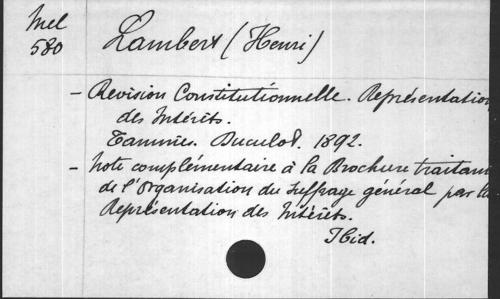 Mel
580
Lambert (Henri)
- Revision Constitutionnelle. Représentation
des Intérêts.
Tamines. Duculot. 1892.
- Note complémentaire à la Brochure traitan
de l'organisation du suffrage général par la
Représentation des Intérêts.
Ibid.